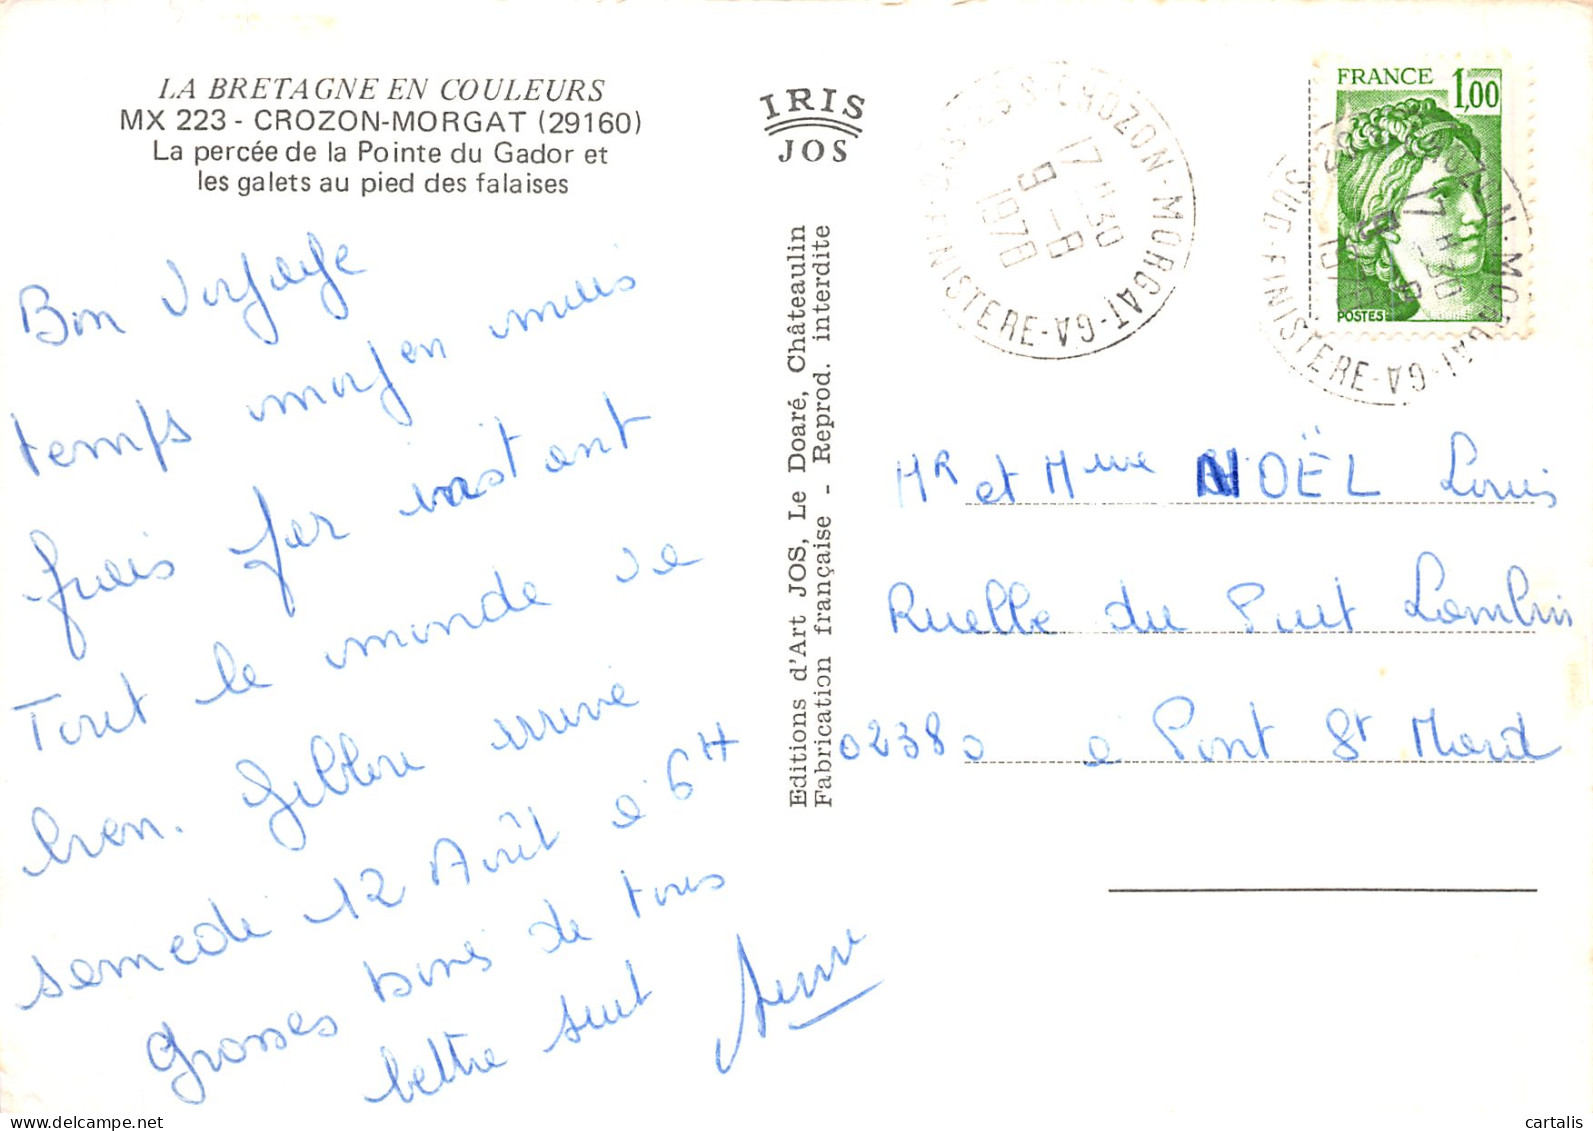 LA BRETAGNE EN COULEURS
MX 223 - CROZON-MORGAT (29160)
La percée de la Pointe du Gador et
les galets au pied des falaises
Bon voyage
temps moyen mais
frais par instant
Tout le monde va
bien. arrive
samedi 12 Août à 6H
Grosses bises de tous
lettre suit
IRIS
JOS
Editions d'Art JOS, Le Doaré, Châteaulin
Fabrication française - Reprod. interdite
CROZON-MORGAT-GA
FINISTERE
17 H 30
9 - 8
1978
FRANCE
1,00
POSTES
CROZON-MORGAT-GA
SUD-FINISTERE
17 H 30
Mr et Mme NOËL Louis
Ruelle du Puit
02380 à Pont St Mard
cartalis